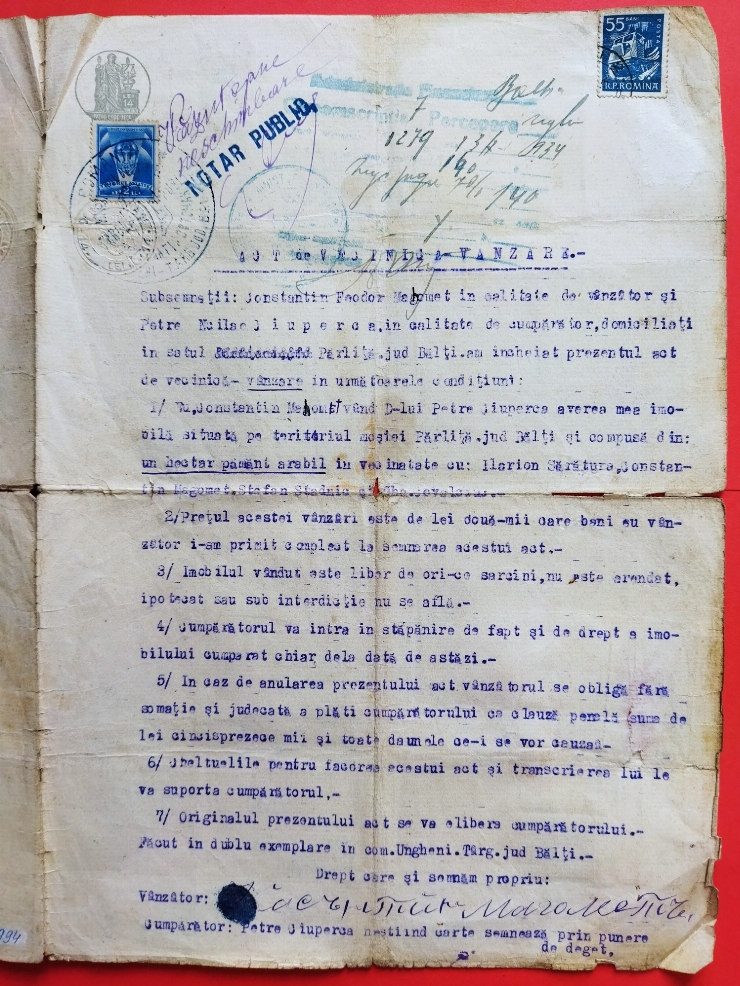 55 BANI
POSTA
R.P.ROMINA
NOTAR PUBLIC
Administrația Financiară
Circumscripția Percepere
1279
1934
140
ACT de VECINICA-VÂNZARE.-
Subsemnații: Constantin Feodor Magomet in calitate de vânzător și
Petre Ciuperca, in calitate de cumpărător, domiciliați
in satul Pârlița.jud Bălți.am incheiat prezentul act
de vecinică- vânzare in următoarele condițiuni:
1/ Eu, Constantin Magomet vând D-lui Petre Ciuperca averea mea imo-
bilă situată pe teritoriul moșiei Pârlița.jud Bălți și compusă din:
un hectar pământ arabil in vecinatate cu: Ilarion Sărătura, Constan-
tin Magomet.Stefan Stadnic și
2/Prețul acestei vânzări este de lei două-mii care bani eu vân-
zător i-am primit complect la semnarea acestui act.-
3/ Imobilul vândut este liber de ori-ce sarcini,nu este arendat,
ipotecat sau sub interdicție nu se află.-
4/ Cumpărătorul va intra in stăpânire de fapt și de drept a imo-
bilului cumparat chiar dela dată de astăzi.-
5/ In caz de anularea prezentului act vânzătorul se obligă fără
somație și judecată a plăti cumpărătorului ca clauză penală suma de
lei cincisprezece mii și toate daunele ce-i se vor cauza.-
6/ Cheltuelile pentru facerea acestui act și transcrierea lui le
va suporta cumpărătorul,-
7/ Originalul prezentului act se va elibera cumpărătorului.-
Făcut in dublu exemplare in com.Ungheni.Târg.jud Bălți.-
Drept care și semnăm propriu:
Vânzător:
Cumpărător: Petre Ciuperca neștiind carte semnează prin punere
de deget.
994